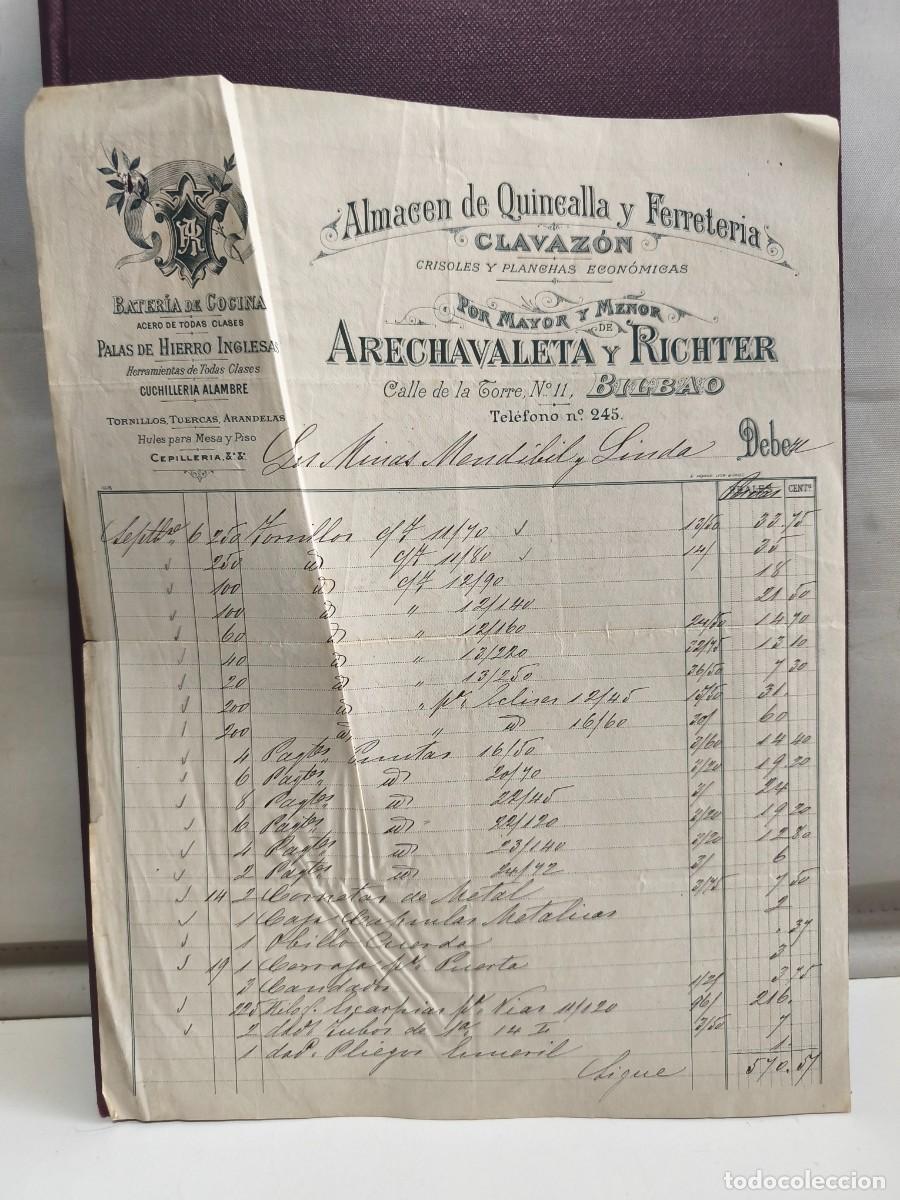 AR
BATERÍA DE COCINA
ACERO DE TODAS CLASES
PALAS DE HIERRO INGLESAS
Herramientas de Todas Clases
CUCHILLERIA ALAMBRE
TORNILLOS, TUERCAS, ARANDELAS
Hules para Mesa y Piso
CEPILLERIA, &ª &ª
Almacen de Quincalla y Ferreteria
CLAVAZÓN
CRISOLES Y PLANCHAS ECONÓMICAS
POR MAYOR Y MENOR
DE
ARECHAVALETA Y RICHTER
Calle de la Torre, Nº 11, BILBAO
Teléfono nº 245.
Las Minas Mendibil y Linda Deben
CENTS
Septbre 6 250 Tornillos c/7 11/70 13/50 33 75
250 id c/7 11/80 14/ 35
100 id c/7 12/90 18
100 id " 12/140 21 50
60 id " 12/160 24/50 14 70
40 id " 13/220 32/75 13 10
20 id " 13/250 36/50 7 30
200 id " pª 12/45 15/50 31.
200 id " id 16/60 30/ 60
4 Paqtes Puntas 16/50 3/60 14 40
6 Paqtes id 20/70 3/20 19 20
8 Paqtes id 22/45 3/ 24
6 Paqtes id 22/120 3/20 19 20
4 Paqtes id 23/140 3/20 12 80
2 Paqtes id 24/72 3/ 6
14 2 Cornetas de Metal 3/75 7 50
1 Caja Capsulas Metalicas 2
1 Obillo Cuerda . 37
19 1 Cerraja pª Puerta 3
3 Candados 1/25 3 75
225 Kilog. Escarpias pª Vias 11/120 96/ 216.
2 docs Tubos de 14 L 3/50 7
1 docª Pliegos Esmeril 1.
Sigue 570.57
todocoleccion